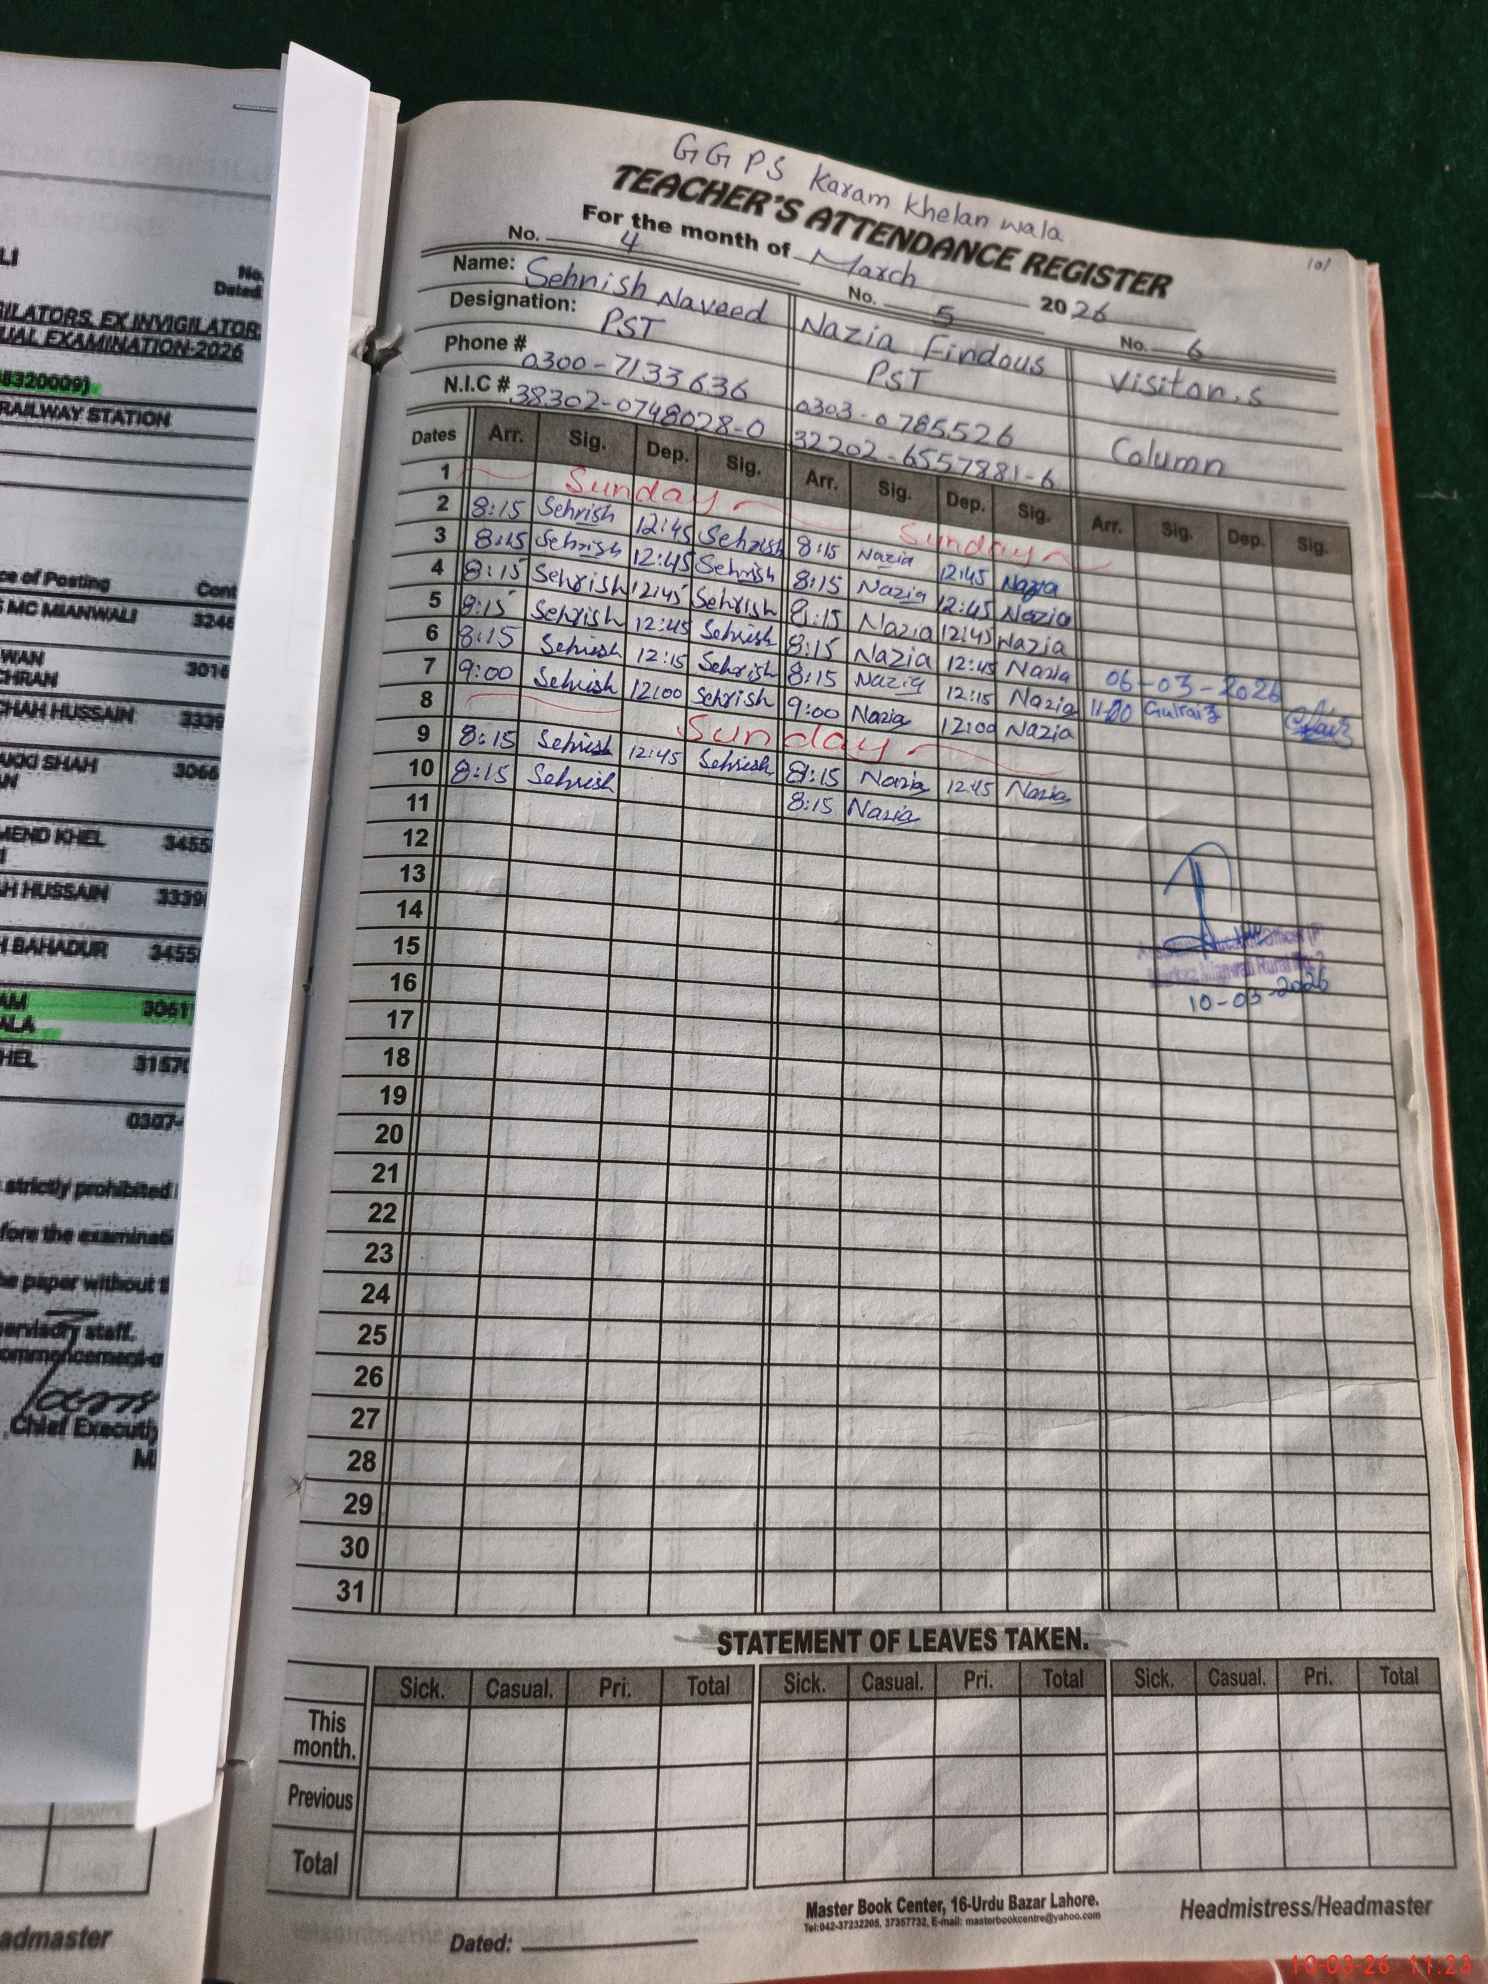 LI
No.
Dated
IGILATORS, EX INVIGILATOR
UAL EXAMINATION-2026
8320009)
RAILWAY STATION
ce of Posting Cont
MC MIANWALI 3246
WAN 3016
CHRAN
CHAH HUSSAIN 3339
AKKI SHAH 3066
AN
MEND KHEL 3455
H HUSSAIN 3339
H BAHADUR 3455
AM 3061
ALA
HEL 3157
0307-
strictly prohibited
fore the examinati
he paper without
ervisory staff.
ommencement
Chief Executi
M
admaster
101
GGPS Karam Khelan wala
TEACHER'S ATTENDANCE REGISTER
For the month of March 2026
No. 4 No. 5 No. 6
Name: Sehrish Naveed Nazia Firdous Visitor,s
Designation: PST PST
Phone # 0300-7133636 0303-0785526 Column
N.I.C # 38302-0748028-0 32202-6557881-6
Dates Arr. Sig. Dep. Sig. Arr. Sig. Dep. Sig. Arr. Sig. Dep. Sig.
1 Sunday Sunday
2 8:15 Sehrish 12:45 Sehrish 8:15 Nazia 12:45 Nazia
3 8:15 Sehrish 12:45 Sehrish 8:15 Nazia 12:45 Nazia
4 8:15 Sehrish 12:45 Sehrish 8:15 Nazia 12:45 Nazia
5 8:15 Sehrish 12:45 Sehrish 8:15 Nazia 12:45 Nazia
6 8:15 Sehrish 12:15 Sehrish 8:15 Nazia 12:15 Nazia 06-03-2026
7 9:00 Sehrish 12:00 Sehrish 9:00 Nazia 12:00 Nazia 11:00 Gulraiz
8 Sunday
9 8:15 Sehrish 12:45 Sehrish 8:15 Nazia 12:45 Nazia
10 8:15 Sehrish 8:15 Nazia
11
12
13
14
15
16 10-03-2026
17
18
19
20
21
22
23
24
25
26
27
28
29
30
31
STATEMENT OF LEAVES TAKEN.
Sick. Casual. Pri. Total Sick. Casual. Pri. Total Sick. Casual. Pri. Total
This
month.
Previous
Total
Master Book Center, 16-Urdu Bazar Lahore.
Tel:042-37232205, 37357732, E-mail: masterbookcentre@yahoo.com
Headmistress/Headmaster
Dated:
10-03-26 11:23